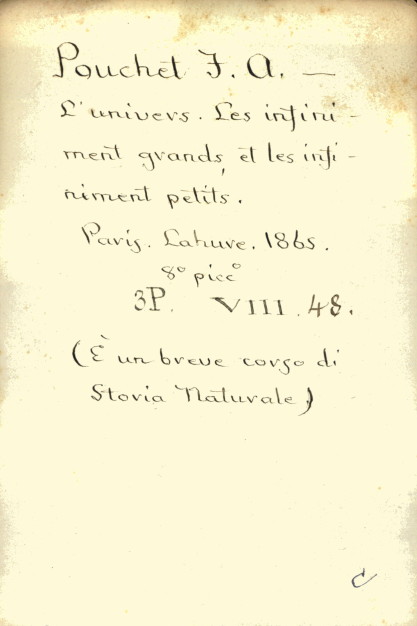 Pouchet F. A. —
L'univers. Les infini-
ment grands, et les infi-
niment petits.
Paris. Lahure. 1865.
8° picc°
3P. VIII. 48.
(È un breve corso di
Storia Naturale)
C